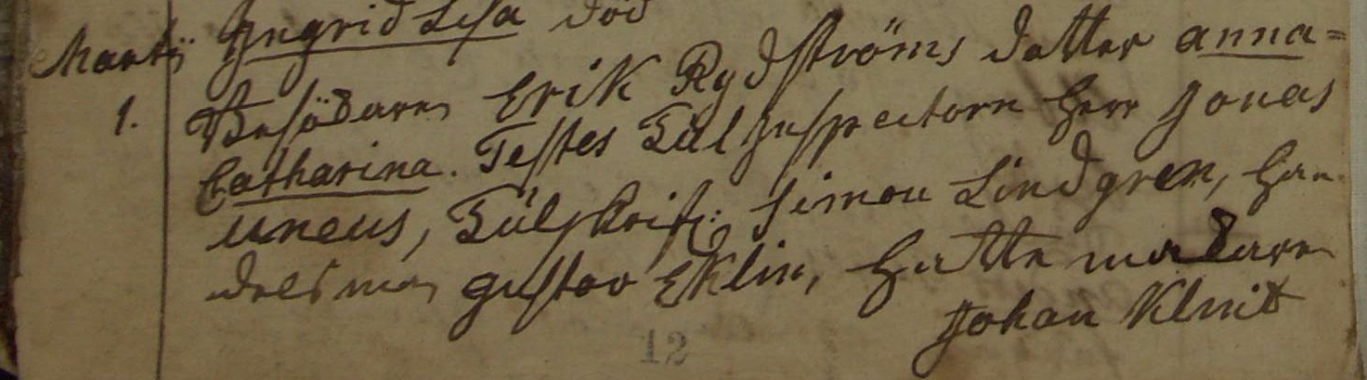 Ingrid Lisa död
Martij
1. Besökaren Erik Rydströms datter anna=
Catharina. Testes Tull Inspectoren Herr Jonas
uneus, Tullskrif: Simon Lindgren, Han
delsman Gustav Eklin, Hattemakaren
Johan Klint
12